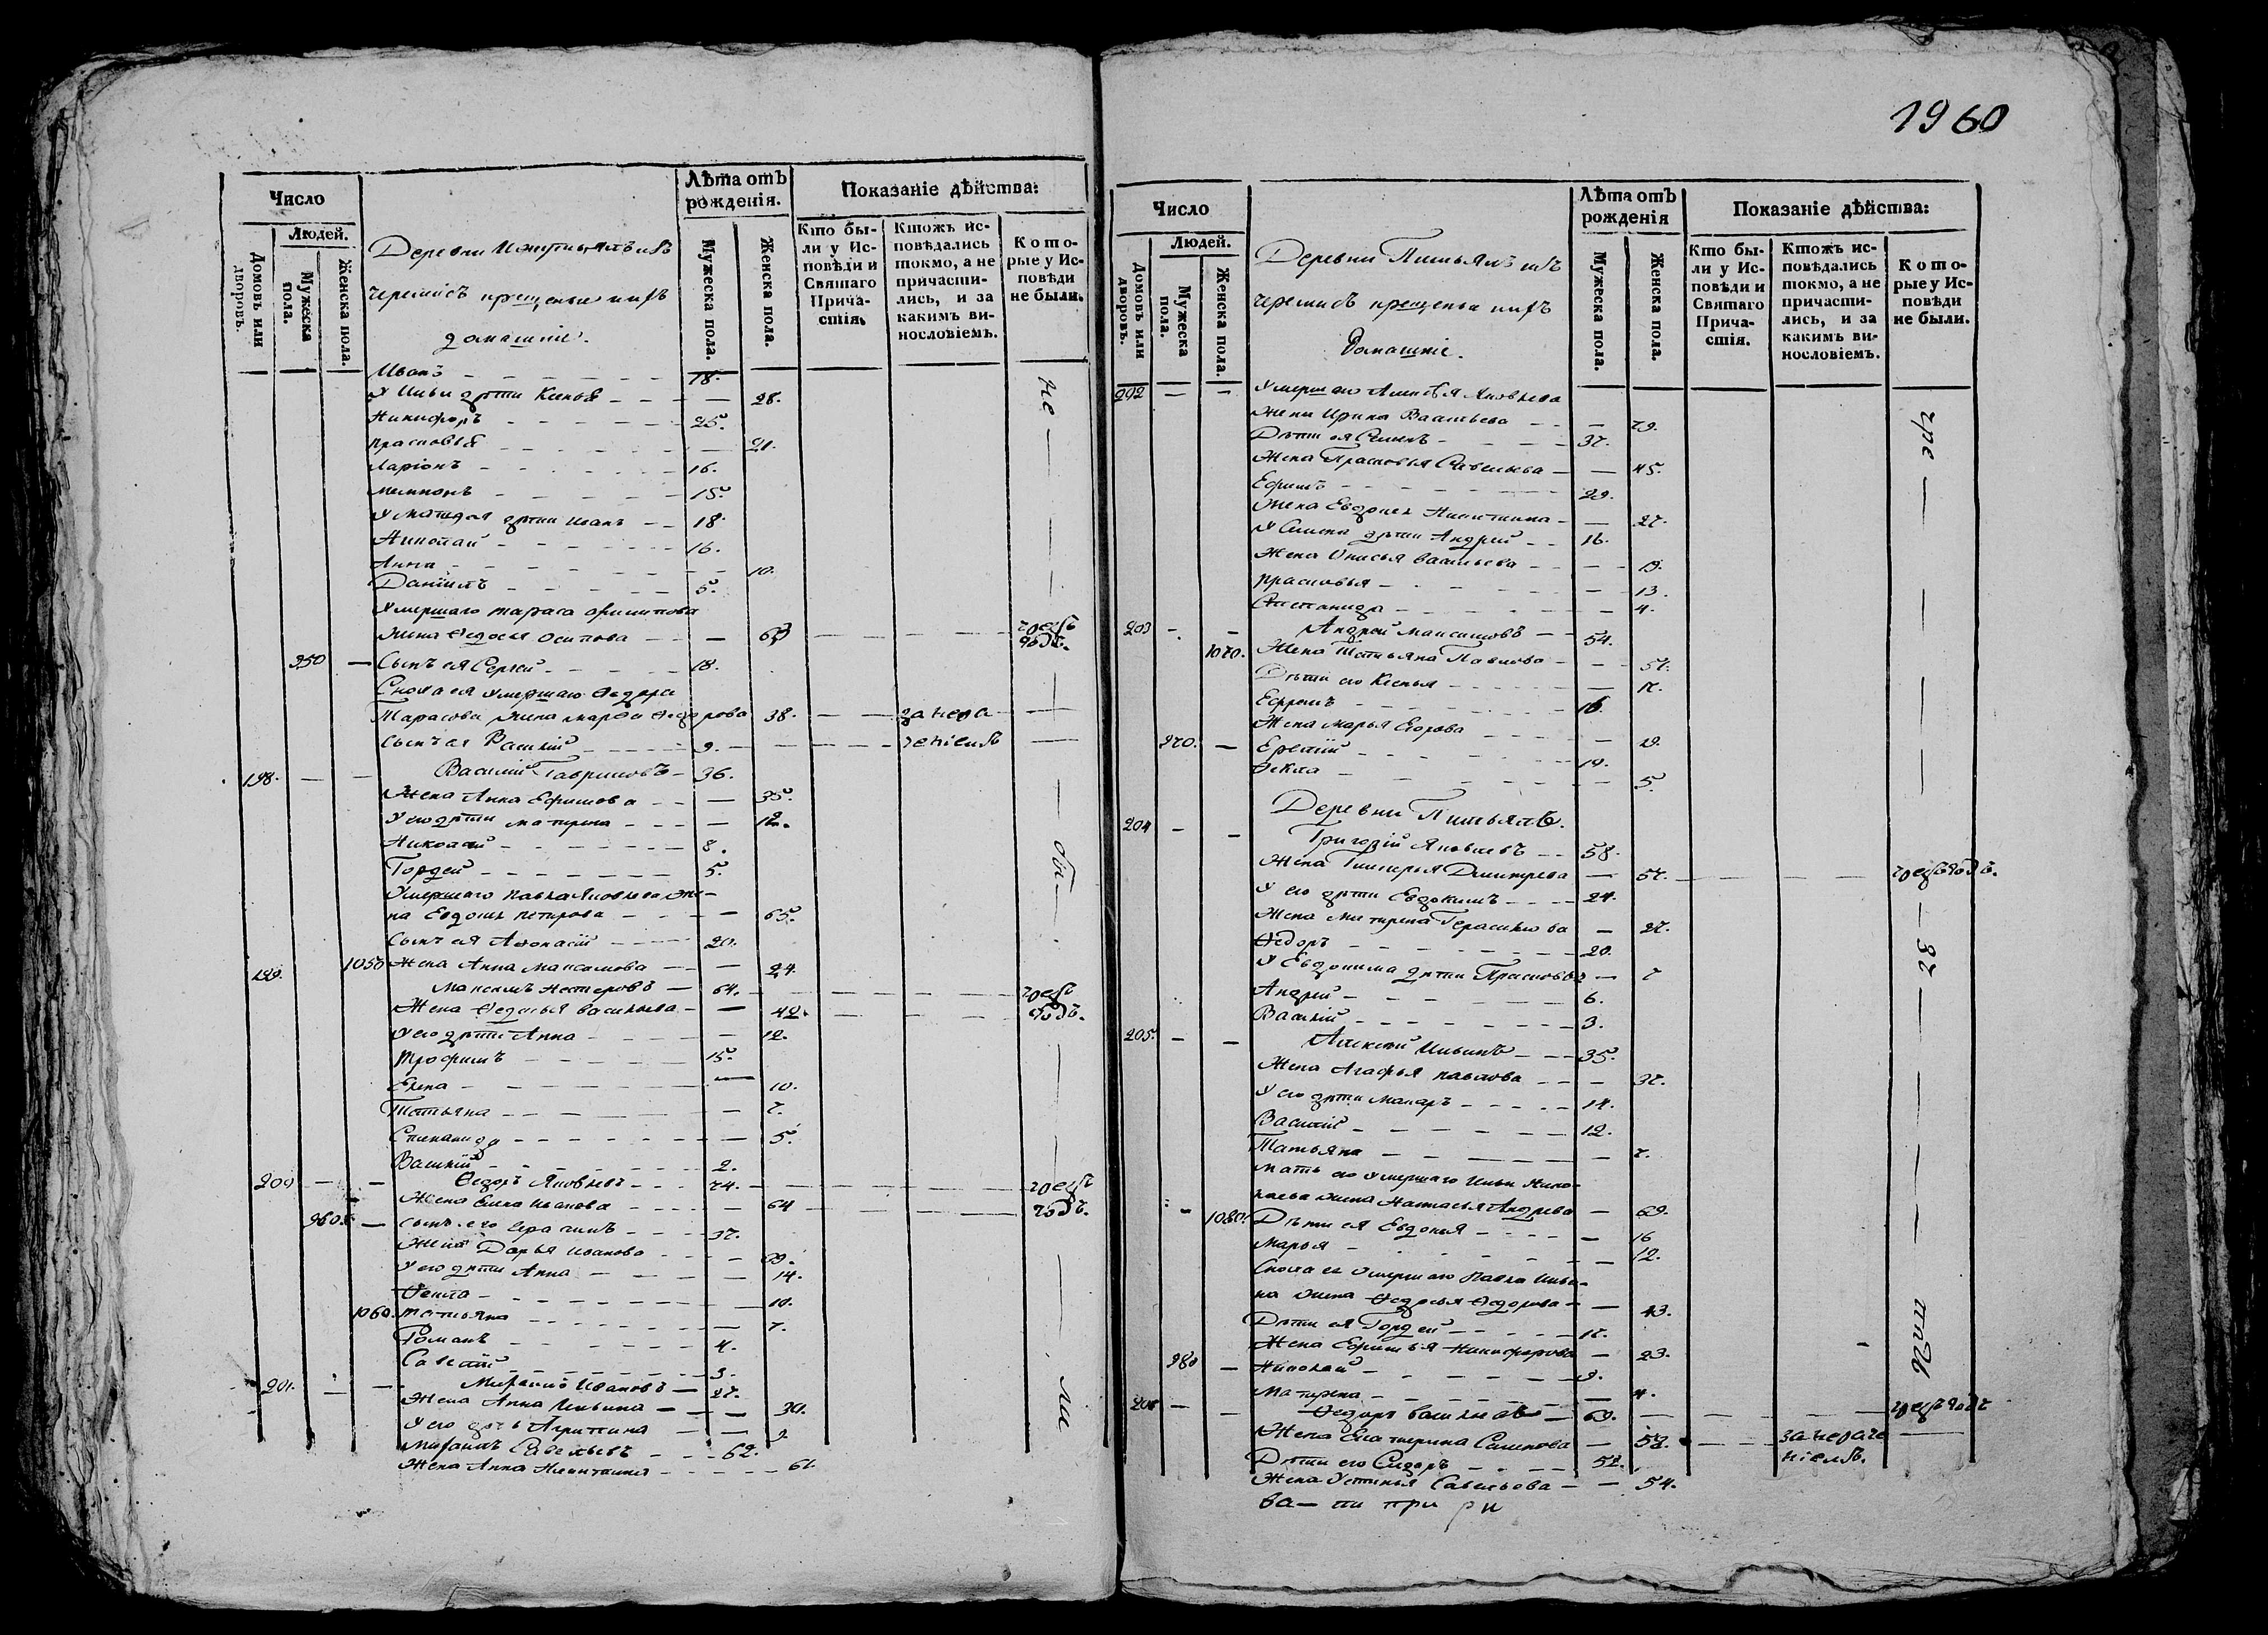 1960
Число
Людей.
Домовъ или дворовъ.
Мужеска пола.
Женска пола.
Деревни
черемисъ крещеныхъ
домашніе.
Лѣта отъ рожденія.
Мужеска пола.
Женска пола.
Показаніе дѣйства:
Кто были у Исповѣди и Святаго Причастія.
Ктожъ исповѣдались токмо, а не причастились, и за какимъ винословіемъ.
Которые у Исповѣди не были.
Иванъ 18.
У Ильи дѣти 28.
Никифоръ 25.
Прасковья 21.
Ларіонъ 16.
15.
У дѣти Иванъ 18.
Николай 16.
Анна 10.
Даніилъ 5.
Умершаго Тараса
жена Ѳедосья Осипова
950 Сынъ ея Сергѣй 18.
Сноха ея умершаго Ѳедора
Тарасова жена Марѳа Ѳедорова 38.
Сынъ ея Василій 9.
198. Василій Гавриловъ 36.
Жена Анна Ефимова 35.
У его дѣти Матрена 12.
Николай 8.
Гордей 5.
Умершаго Павла Яковлева же-
на Евдокія Петрова 65.
Сынъ ея Аѳонасій 20.
1050 Жена Анна Максимова 24.
199. Максимъ Нестеровъ 64.
Жена Ѳедосья Васильева 42.
У его дѣти Анна 12.
Трофимъ 15.
Елена 10.
Татьяна 7.
Степанида 5.
Василій 2.
200 Ѳедоръ Яковлевъ 74.
Жена Елена Иванова 64
960. Сынъ его Герасимъ 37.
Жена Дарья Иванова 39.
У его дѣти Анна 14.
Ѳекла 10.
1060. Татьяна 7.
Романъ 4.
Савелій 3.
201. Михаилъ Ивановъ 27.
Жена Анна Ильина 30.
У его дочь Агрипина 2
Михаилъ Савельевъ 62.
Жена Анна Никитина 61
Число
Людей.
Домовъ или дворовъ.
Мужеска пола.
Женска пола.
Деревни Питьялъ
черемисъ крещеныхъ
Домашніе.
Лѣта отъ рожденія
Мужеска пола.
Женска пола.
Показаніе дѣйства:
Кто были у Исповѣди и Святаго Причастія.
Ктожъ исповѣдались токмо, а не причастились, и за какимъ винословіемъ.
Которые у Исповѣди не были.
202 Умершаго Алексѣя Яковлева
жена Ирина Васильева 79.
Дѣти ея Семенъ 37.
Жена Прасковья Савельева 45.
Ефимъ 29.
Жена Евдокія Никитина 27.
У Семена дѣти Андрей 16.
Жена Анисья Васильева 19.
Прасковья 13.
Степанида 4.
203 Андрей Максимовъ 54.
1070. Жена Татьяна Павлова 57.
Дѣти его Ксенья 17.
Ефремъ 16.
Жена Марья Егорова 19.
970. Еремій 10.
Ѳекла 5.
Деревни Питьялъ.
204 Григорій Яковлевъ 58.
Жена Гликерья Дмитрева 57.
У его дѣти Евдокимъ 24.
Жена Матрена Герасимова 27.
Ѳедоръ 20.
У Евдокима дѣти Прасковья 7
Андрей 6.
Василій 3.
205. Алексѣй Ильинъ 35.
Жена Агафья Павлова 37.
У его дѣти Макаръ 14.
Василій 12.
Татьяна 7.
Мать его умершаго Ильи Нико-
лаева жена Настасья Андрева 69.
1080. Дѣти ея Евдокія 16
Марья 12.
Сноха ея умершаго Павла Ильи-
на жена Ѳедосья Ѳедорова 43.
Дѣти ея Гордей 17.
Жена Ефимья Никифорова 23.
980 Николай 9.
Матрена 4.
206 Ѳедоръ Васильевъ 69.
Жена Екатерина Семенова 52.
Дѣти его Сидоръ 52.
Жена Устинья Савельева 54.